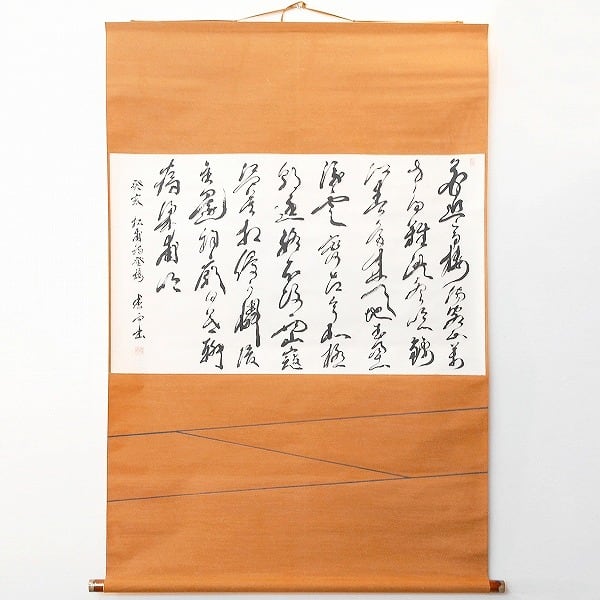 花近高樓傷客心萬
方多難此登臨錦
江春色來天地玉壘
浮雲變古今北極
朝廷終不改西山寇
盜莫相侵可憐後
主還祠廟日暮聊
為梁甫吟
癸亥 杜甫詩登樓 書